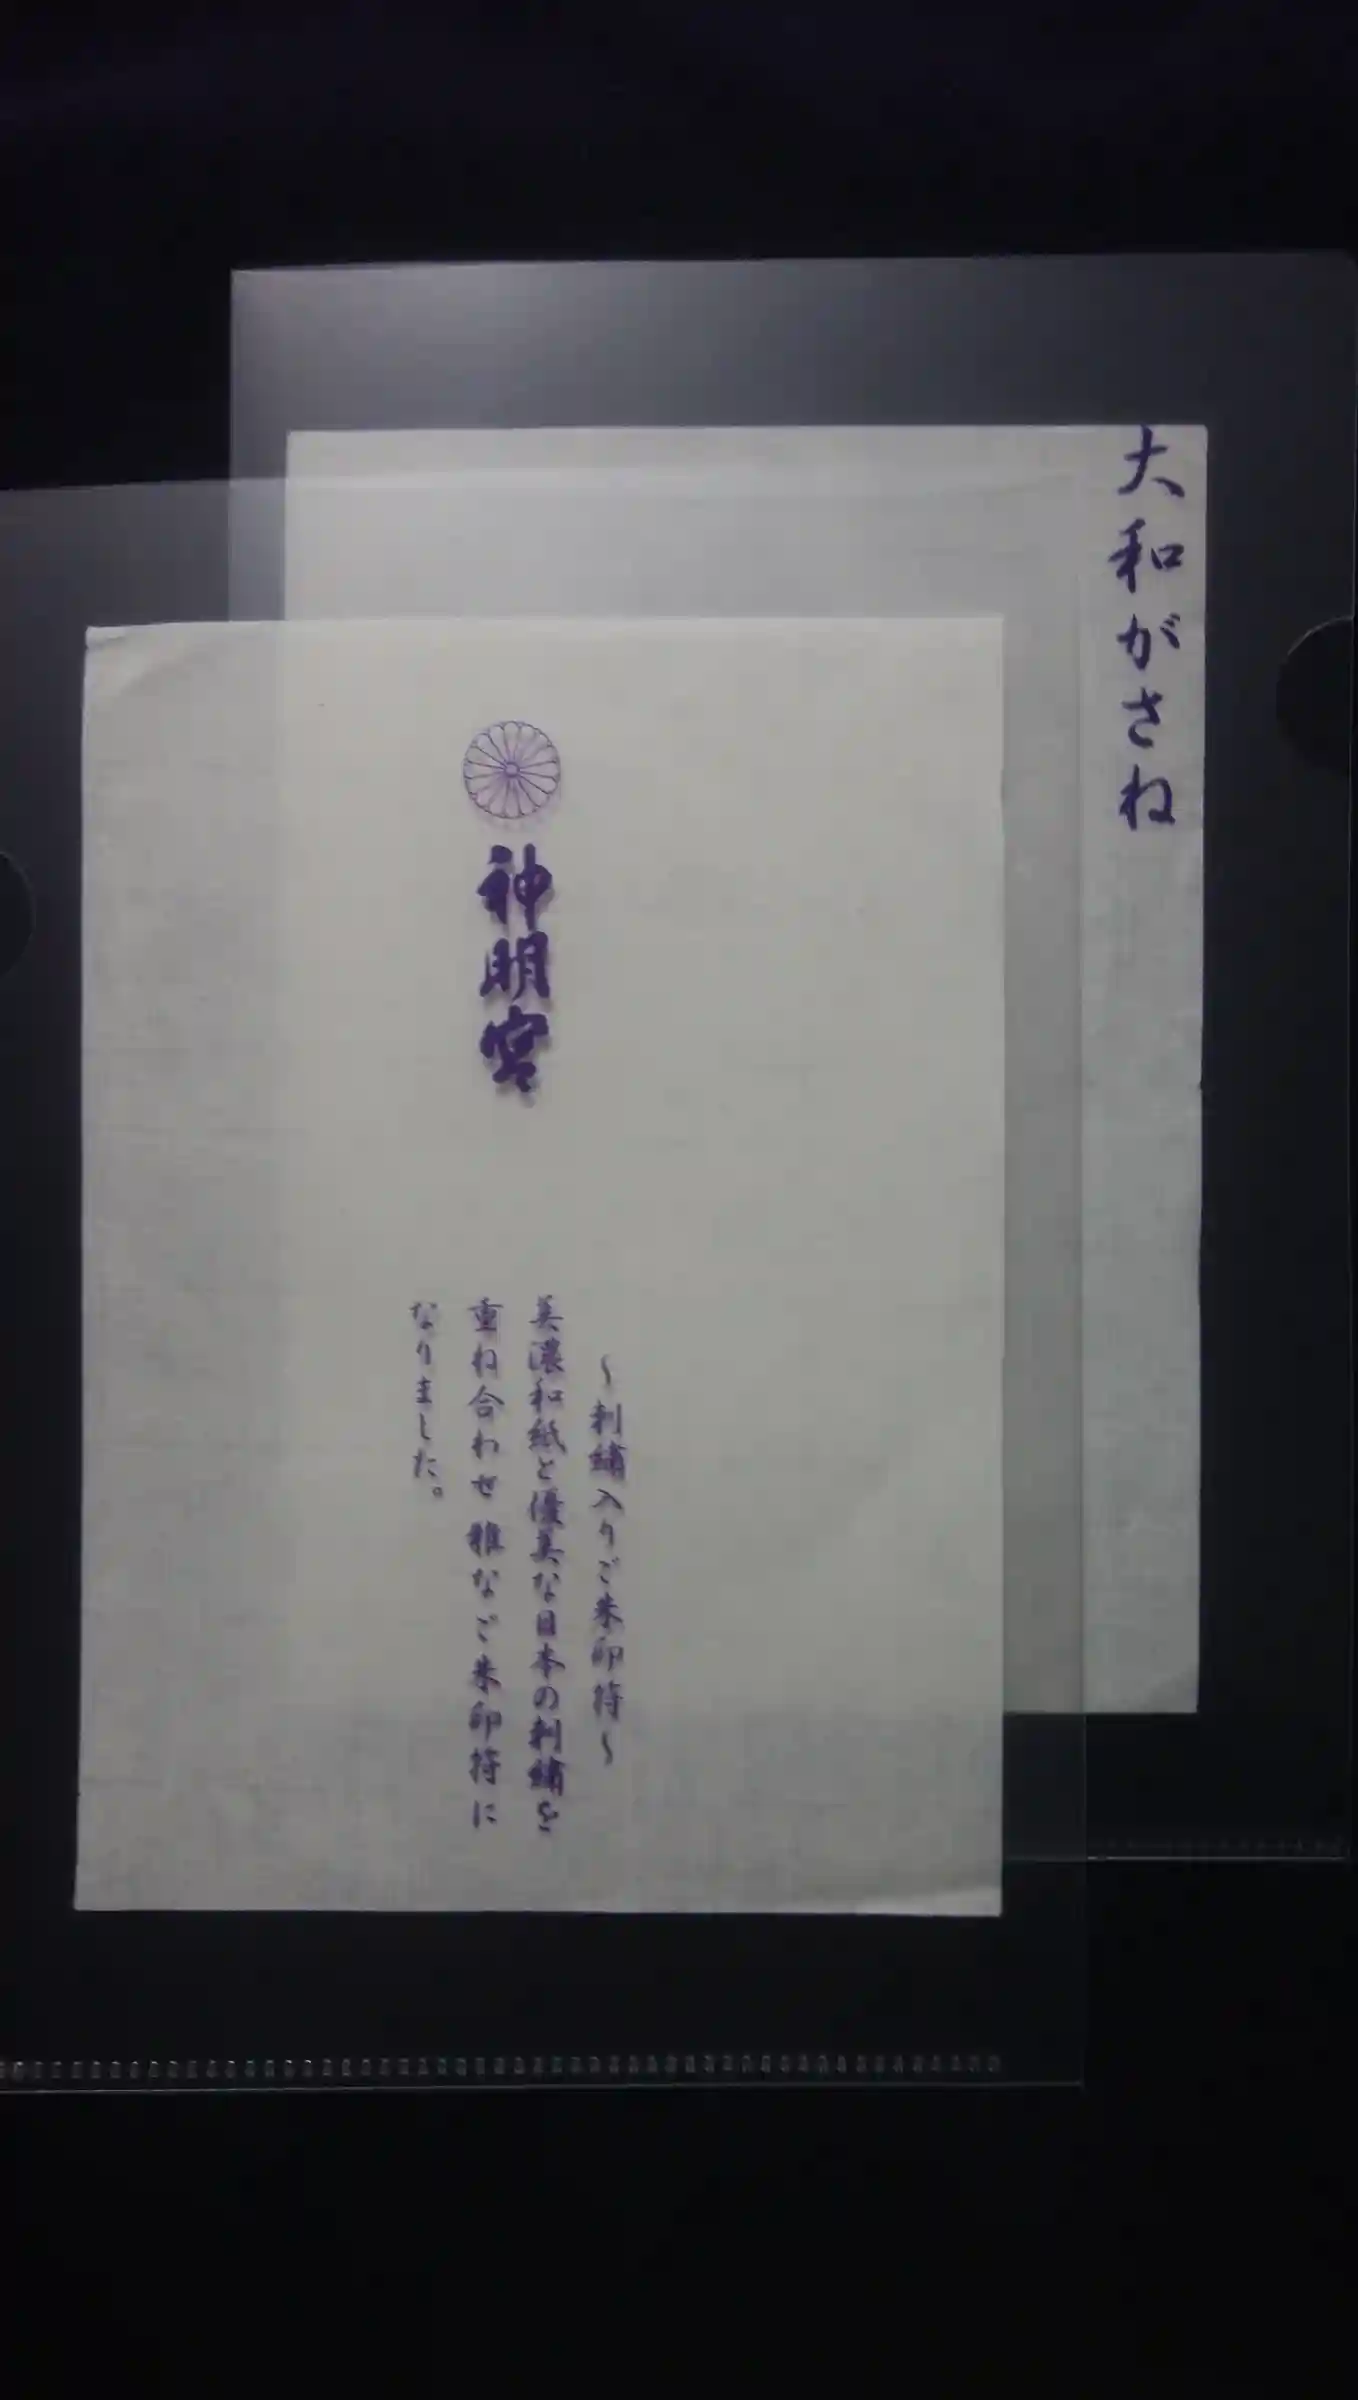 大和がさね
～刺繍入りご朱印符～
美濃和紙と優美な日本の刺繍を
重ね合わせ 雅なご朱印符に
なりました。
神明宮